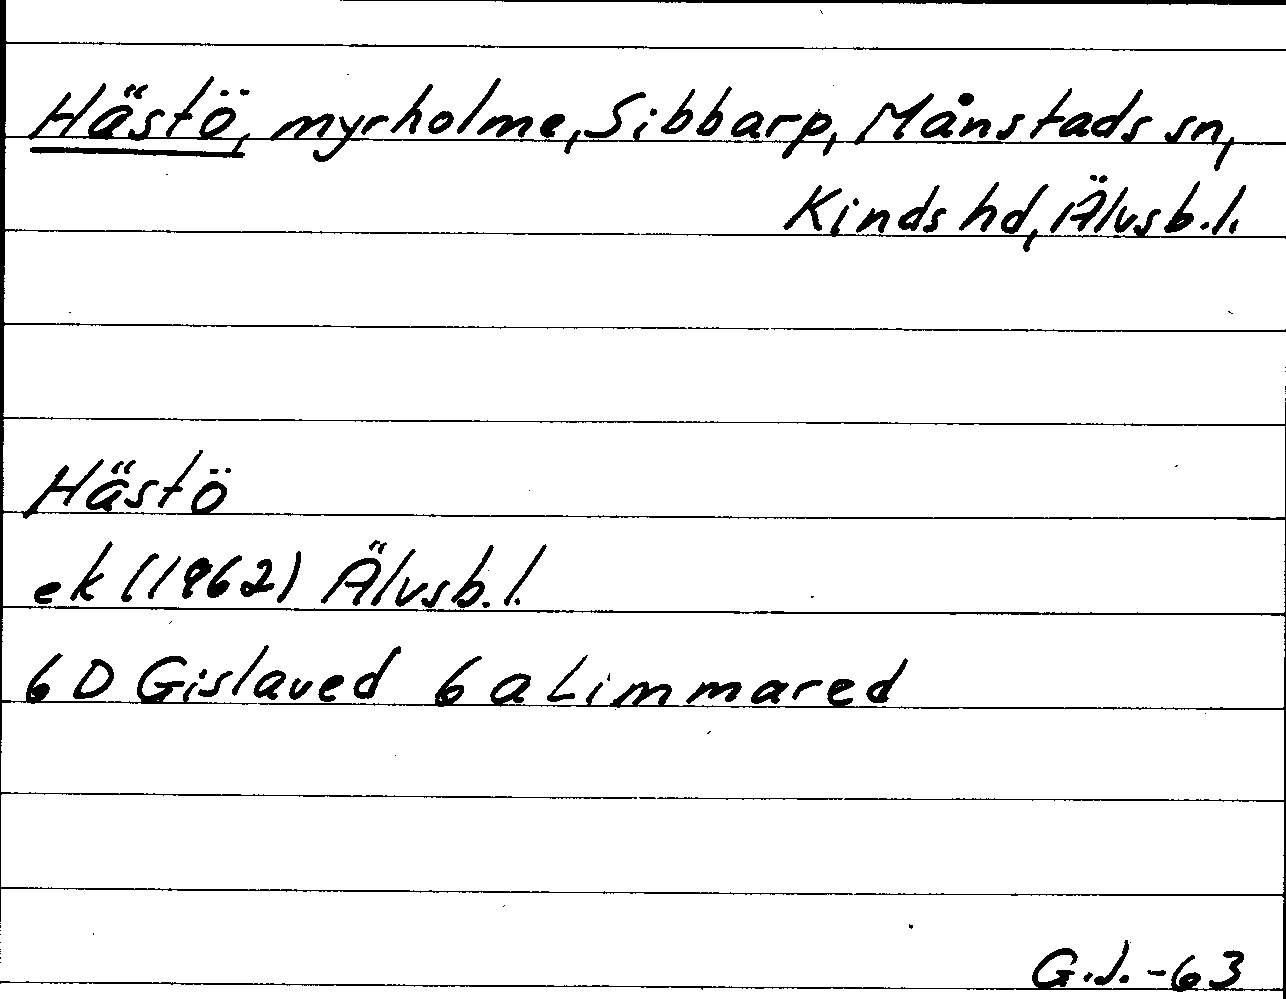 Hästö, myrholme, Sibbarp, Månstads sn,
Kinds hd, Älvsb.l.
Hästö
ek (1962) Älvsb.l.
6 D Gislaved 6 a Limmared
G.J. -63